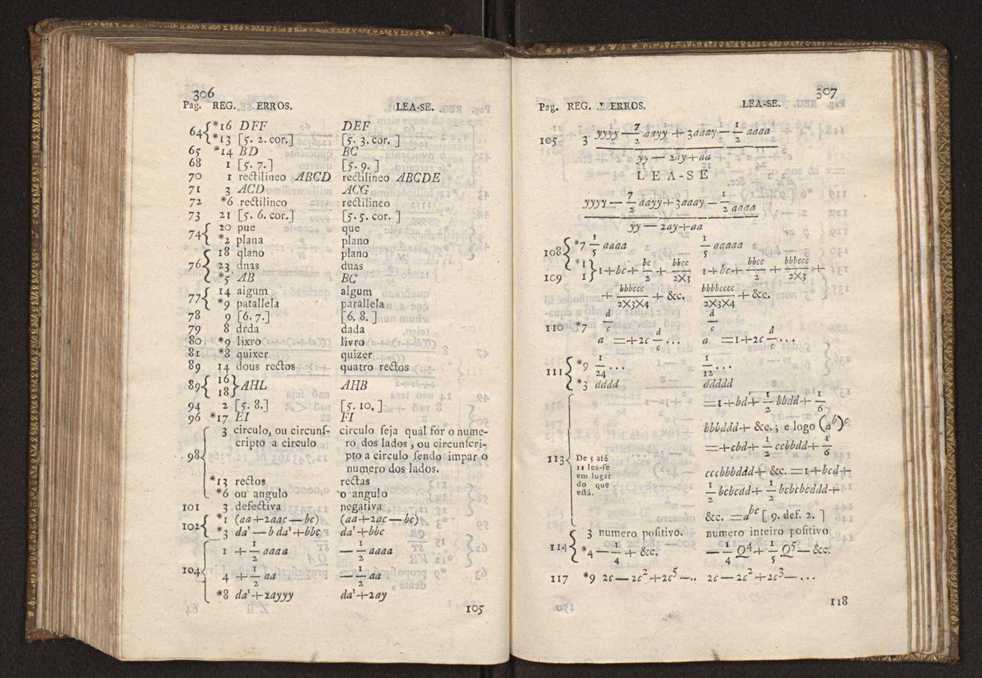 306
Pag. REG. ERROS. LEA-SE.
64 { *16 DFF DEF
*13 [5. 2. cor.] [5. 3. cor. ]
65 *14 BD BC
68 1 [5. 7.] [5. 9. ]
70 1 rectilineo ABCD rectilineo ABCDE
71 3 ACD ACG
72 *6 rectilinco rectilineo
73 21 [5. 6. cor.] [5. 5. cor. ]
74 { 20 pue que
*2 plana plano
76 { 18 qlano plano
23 dnas duas
*5 AB BC
77 { 14 aigum algum
*9 patallela parallela
78 9 [6. 7.] [6. 8. ]
79 8 drda dada
80 *9 lixro livro
81 *8 quixer quizer
89 14 dous rectos quatro rectos
89 { 16 } AHL AHB
18
94 2 [5. 8.] [5. 10. ]
96 *17 EI FI
98 { 3 circulo, ou circunſ- circulo ſeja qual fôr o nume-
cripto a circulo ro dos lados, ou circunſcri-
pto a circulo ſendo impar o
numero dos lados.
*13 rectos rectas
*6 ou angulo o angulo
101 3 defectiva negativa
102 { *1 (aa+2aac—bc) (aa+2ac—bc)
*3 da¹—bda¹+bbc da¹+bbc
104 { 1 +1/2 aaaa —1/2 aaaa
4 +1/2 aa —1/2 aa
*8 da¹+2ayyy da¹+2ay
105
307
Pag. REG. ERROS. LEA-SE.
105 3 yyyy—7/2 aayy+3aaay—1/2 aaaa
yy—2ay+aa
LEA-SE
yyyy—7/2 aayy+3aaay—1/2 aaaa
yy—2ay+aa
108 { *7 1/5 aaaa 1/5 aaaaa
*1 } 1+bc+bc/2+bbcc/2X3 1+bc+bbcc/2+bbbccc/2X3+
109 1
+bbbccc/2X3X4+&c. bbbbcccc/2X3X4+&c.
110 *7 d/c d/c
a =+2c d/c—... a =1+2c d/c—...
111 { *9 1/24 ... 1/12 ...
*3 dddd ddddd
113 { De 5 até =1+bd+1/2 bbdd+1/6
11 lea-ſe bbbddd+&c.; e logo (a^b)^c
em lugar =+cbd+1/2 ccbbdd+1/6
do que cccbbbddd+&c.=1+bcd+
eſtá. 1/2 bcbcdd+1/2 bcbcbcddd+
&c. =a^bc [ 9. def. 2. ]
114 { 3 numero poſitivo. numero inteiro poſitivo
*4—1/4+&c. —1/4 Q4+1/5 Q5—&c.
117 *9 2c—2c²+2c⁵—.. 2c—2c²+2c³—...
118